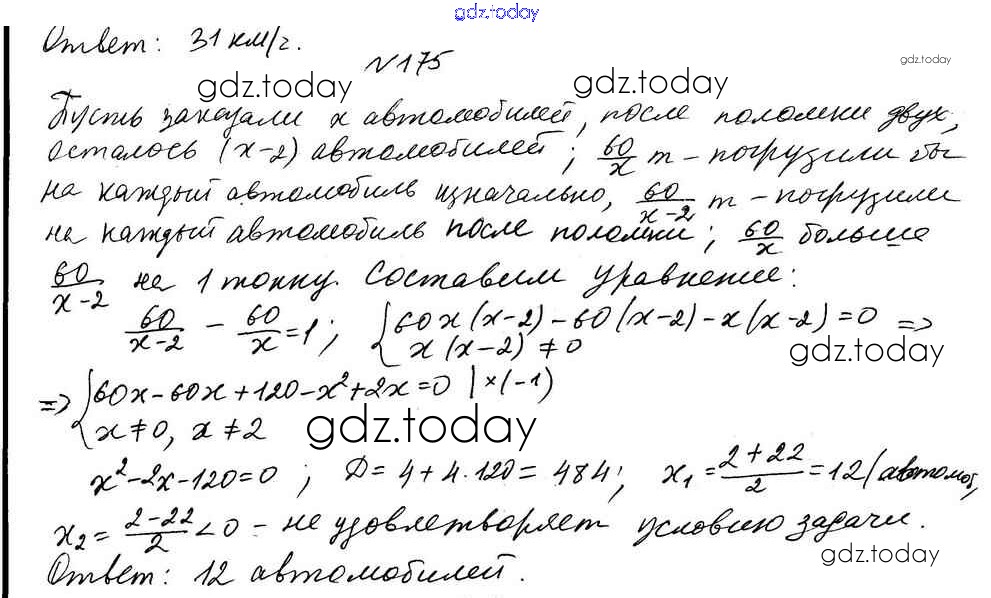 gdz.today
Ответ: 31 км/ч.
gdz.today
№175
gdz.today gdz.today
Пусть заказали x автомобилей, после поломки двух,
осталось (x-2) автомобилей; 60/x т - погрузили бы
на каждый автомобиль изначально, 60/(x-2) т - погрузили
на каждый автомобиль после поломки; 60/x больше
60/(x-2) на 1 тонну. Составим уравнение:
60/(x-2) - 60/x = 1; { 60x(x-2) - 60(x-2) - x(x-2) = 0 =>
x(x-2) ≠ 0
gdz.today
=> { 60x - 60x + 120 - x² + 2x = 0 | ×(-1)
x ≠ 0, x ≠ 2
gdz.today
x² - 2x - 120 = 0; D = 4 + 4·120 = 484; x₁ = (2+22)/2 = 12 (автомоб,
x₂ = (2-22)/2 < 0 - не удовлетворяет условию задачи.
gdz.today
Ответ: 12 автомобилей.